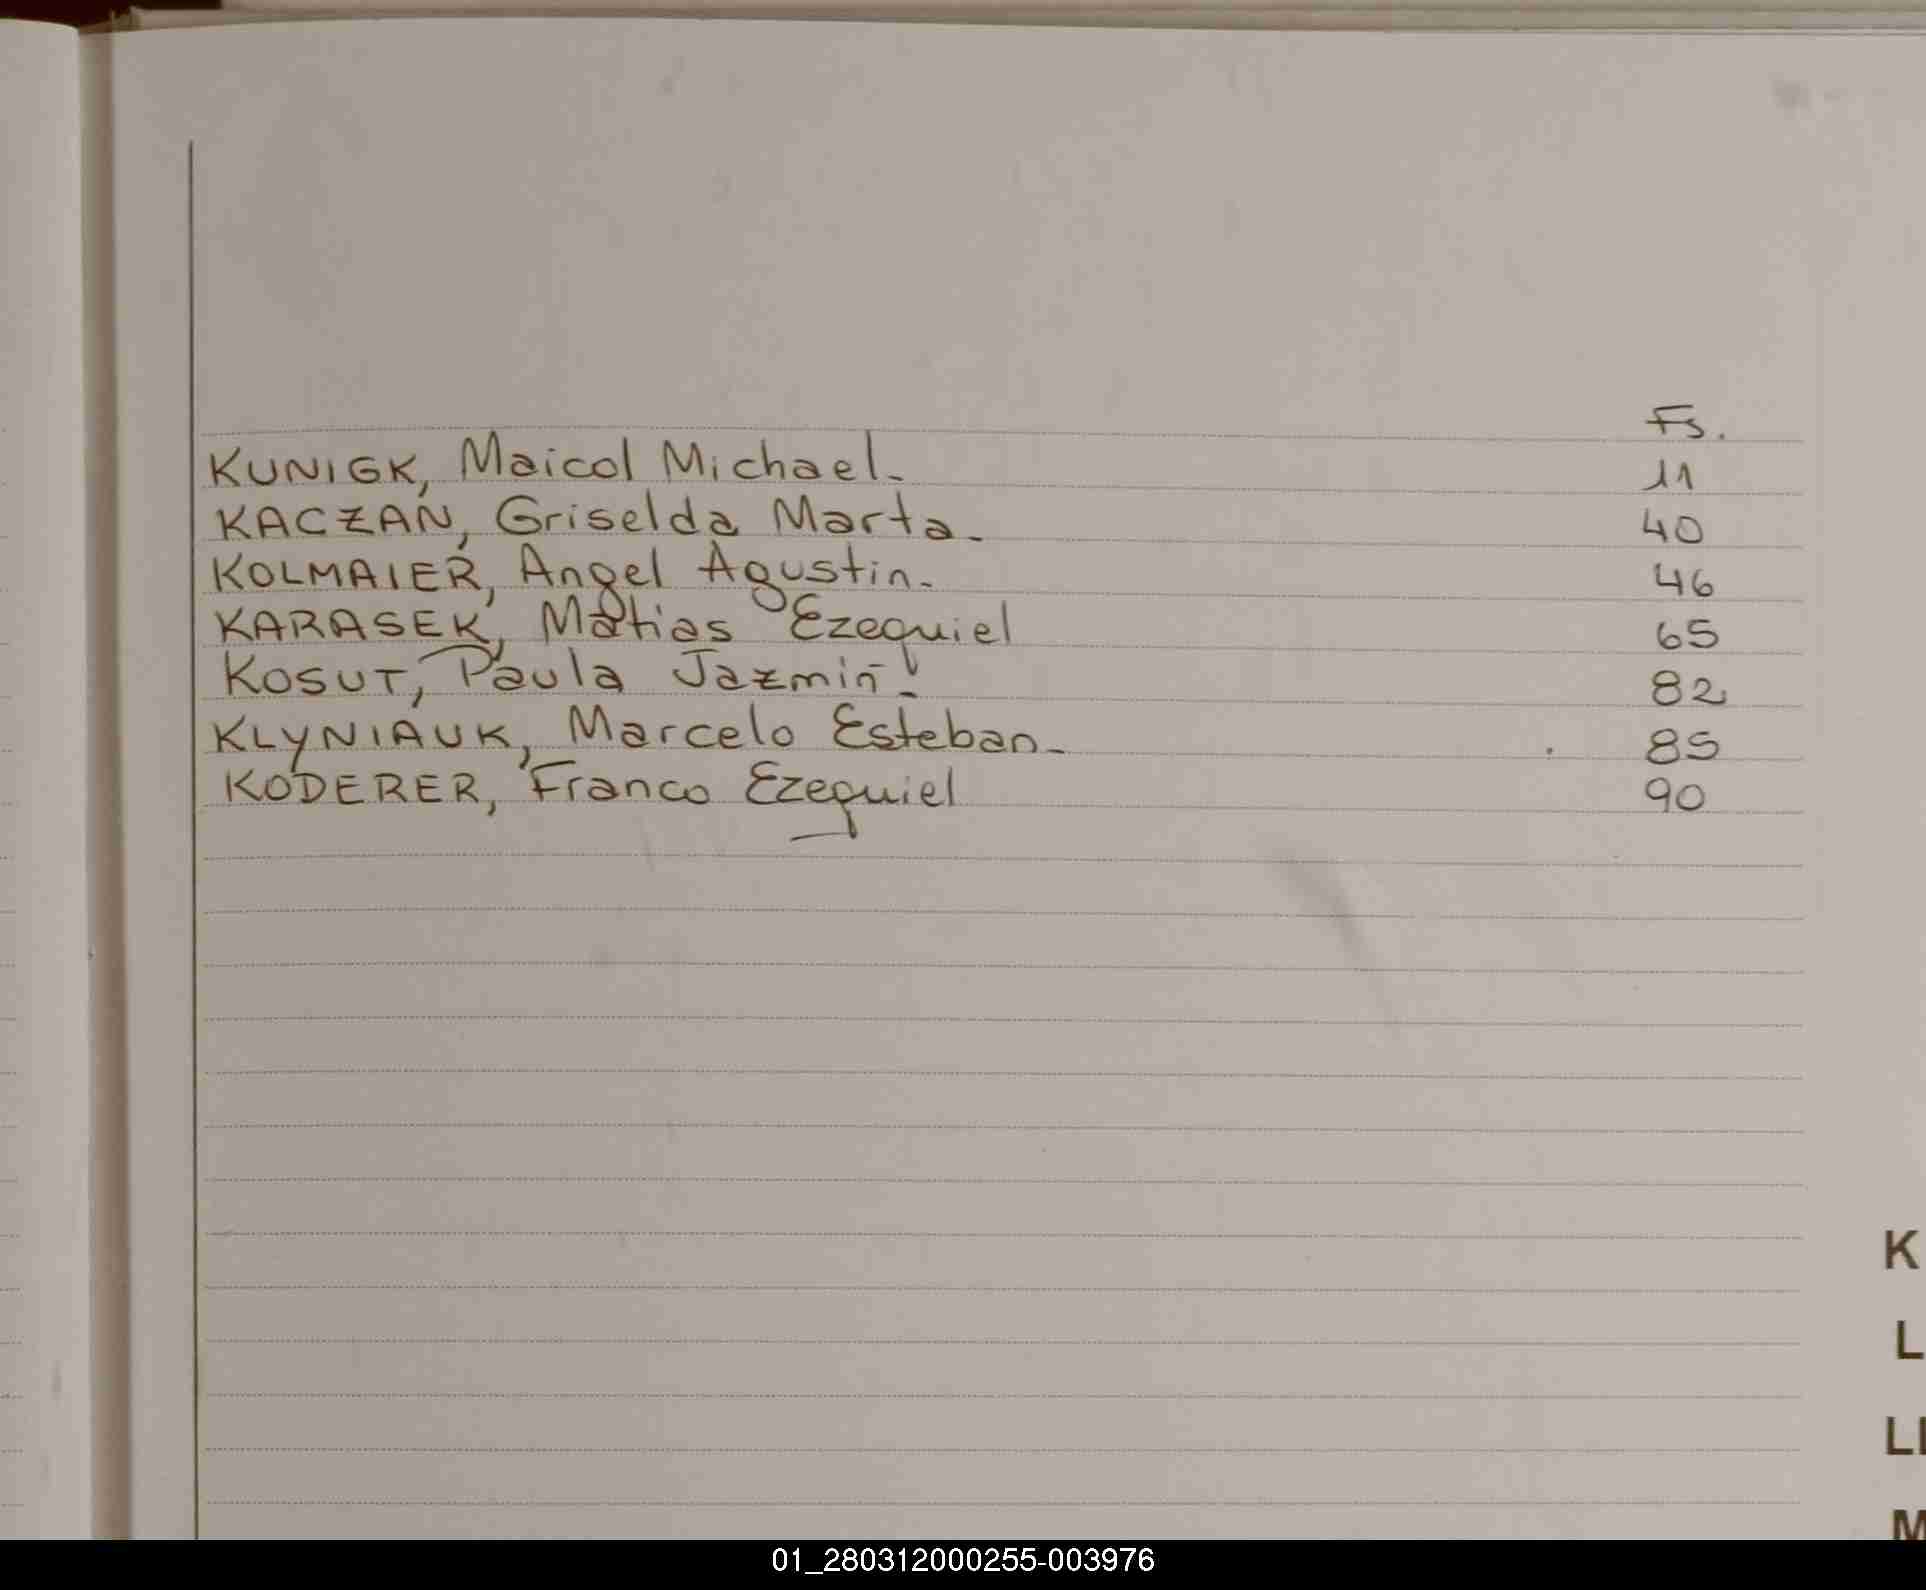 Fs.
KUNIGK, Maicol Michael- 11
KACZAN, Griselda Marta- 40
KOLMAIER, Angel Agustin- 46
KARASEK, Matias Ezequiel 65
KOSUT, Paula Jazmin- 82
KLYNIAUK, Marcelo Esteban- 85
KODERER, Franco Ezequiel 90
K
L
LL
M
01_280312000255-003976